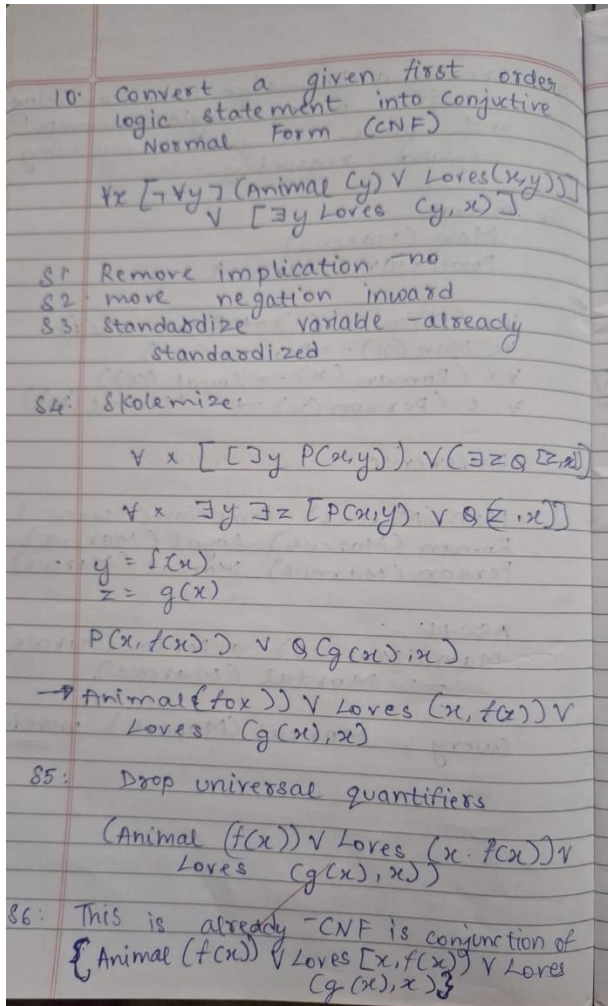 10. Convert a given first order
logic statement into Conjuctive
Normal Form (CNF)
∀x [¬∀y ¬(Animal (y) ∨ Loves(x,y))]
∨ [∃y Loves (y, x)]
S1 Remove implication - no
S2. move negation inward
S3: Standardize variable - already
standardized
S4: Skolemize:
∀ x [[∃y P(x,y)) ∨ (∃z Q [z,x)]
∀ x ∃y ∃z [P(x,y) ∨ Q(z,x]]
y = f(x)
z = g(x)
P(x, f(x)) ∨ Q(g(x), x)
→ Animal(fox)) ∨ Loves (x, f(x)) ∨
Loves (g(x), x)
S5: Drop universal quantifiers
(Animal (f(x)) ∨ Loves (x. f(x)) ∨
Loves (g(x), x))
S6: This is already - CNF is conjunction of
{Animal (f(x)) ∨ Loves [x, f(x)) ∨ Loves
(g(x), x)}